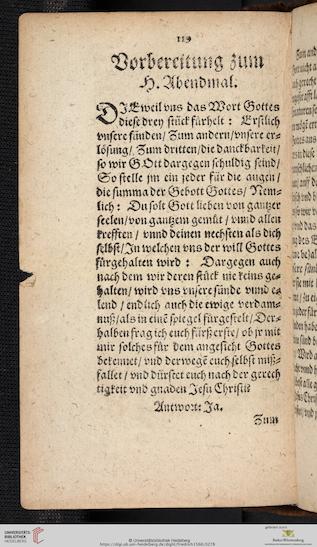 119
Vorbereitung zum
H. Abendmal.
DIEweil vns das Wort Gottes
diese drey stück fürhelt: Erstlich
vnsere sünden/ Zum andern/ vnsere er-
lösung/ Zum dritten/ die danckbarkeit/
so wir GOtt dargegen schuldig seind/
So stelle jm ein jeder für die augen/
die summa der Gebott Gottes/ Nem-
lich: Du solt Gott lieben von gantzer
seelen/ von gantzem gemüt/ vnnd allen
krefften/ vnnd deinen nechsten als dich
selbst/ In welchen vns der will Gottes
fürgehalten wird: Dargegen auch
nach dem wir deren stück nie keins ge-
halten/ wird vns vnsere sünde vnnd e-
lend/ endlich auch die ewige verdam-
nuß/ als in einẽ spiegel fürgestelt/ Der-
halben frag ich euch fürs erste/ ob jr mit
mir solches für dem angesicht Gottes
bekennet/ vnd derwegẽ euch selbst miß-
fallet/ vnd dürstet euch nach der gerech
tigkeit vnd gnaden Jesu Christi?
Antwort: Ja.
Zum
UNIVERSITÄTS-
BIBLIOTHEK
HEIDELBERG
© Universitätsbibliothek Heidelberg
gefördert durch
Baden-Württemberg